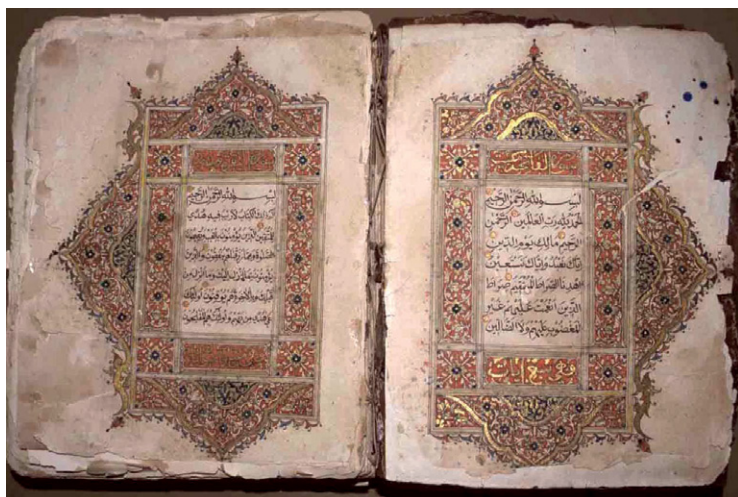 بسم الله الرحمن الرحيم
الحمد لله رب العالمين الرحمن
الرحيم مالك يوم الدين
اياك نعبد واياك نستعين
اهدنا الصراط المستقيم صراط
الذين انعمت عليهم غير
المغضوب عليهم ولا الضالين
وهي سبع ايات
بسم الله الرحمن الرحيم
الم ذلك الكتاب لا ريب فيه هدى
للمتقين الذين يؤمنون بالغيب ويقيمون
الصلوة ومما رزقناهم ينفقون والذين
يؤمنون بما انزل اليك وما انزل من
قبلك وبالاخرة هم يوقنون اولئك
على هدى من ربهم واولئك هم المفلحون